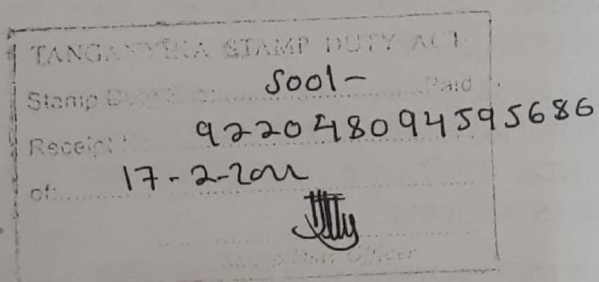 TANGANYIKA STAMP DUTY ACT
Stamp Duty 500/- Paid
Receipt 922048094595686
of: 17-2-2022
Stamp Duty Officer